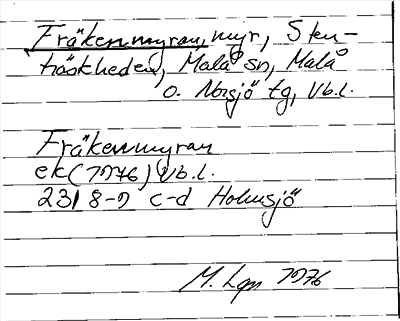 Fräkenmyran, myr, Sten-
träskheden, Malå sn, Malå
o. Norsjö tg, Vb.l.
Fräkenmyran
ek (1976) Vb.l.
23I 8-9 c-d Holmsjö
M. Lgn 1976